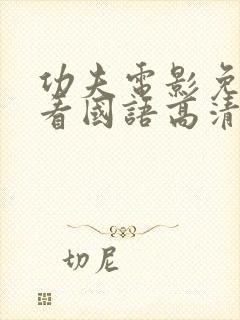 功夫電影免
看國語高清
切尼